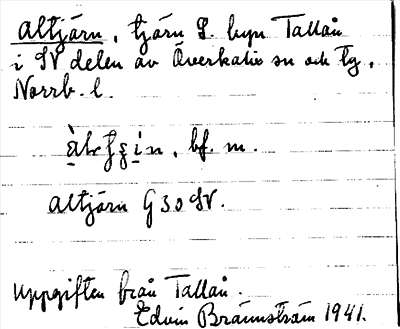 Altjärn, tjärn S. byn Tallån
i SV delen av Överkalix sn och tg,
Norrb. l.
bf. m.
Altjärn G30 SV.
Uppgiften från Tallån.
Edvin Brännström 1941.